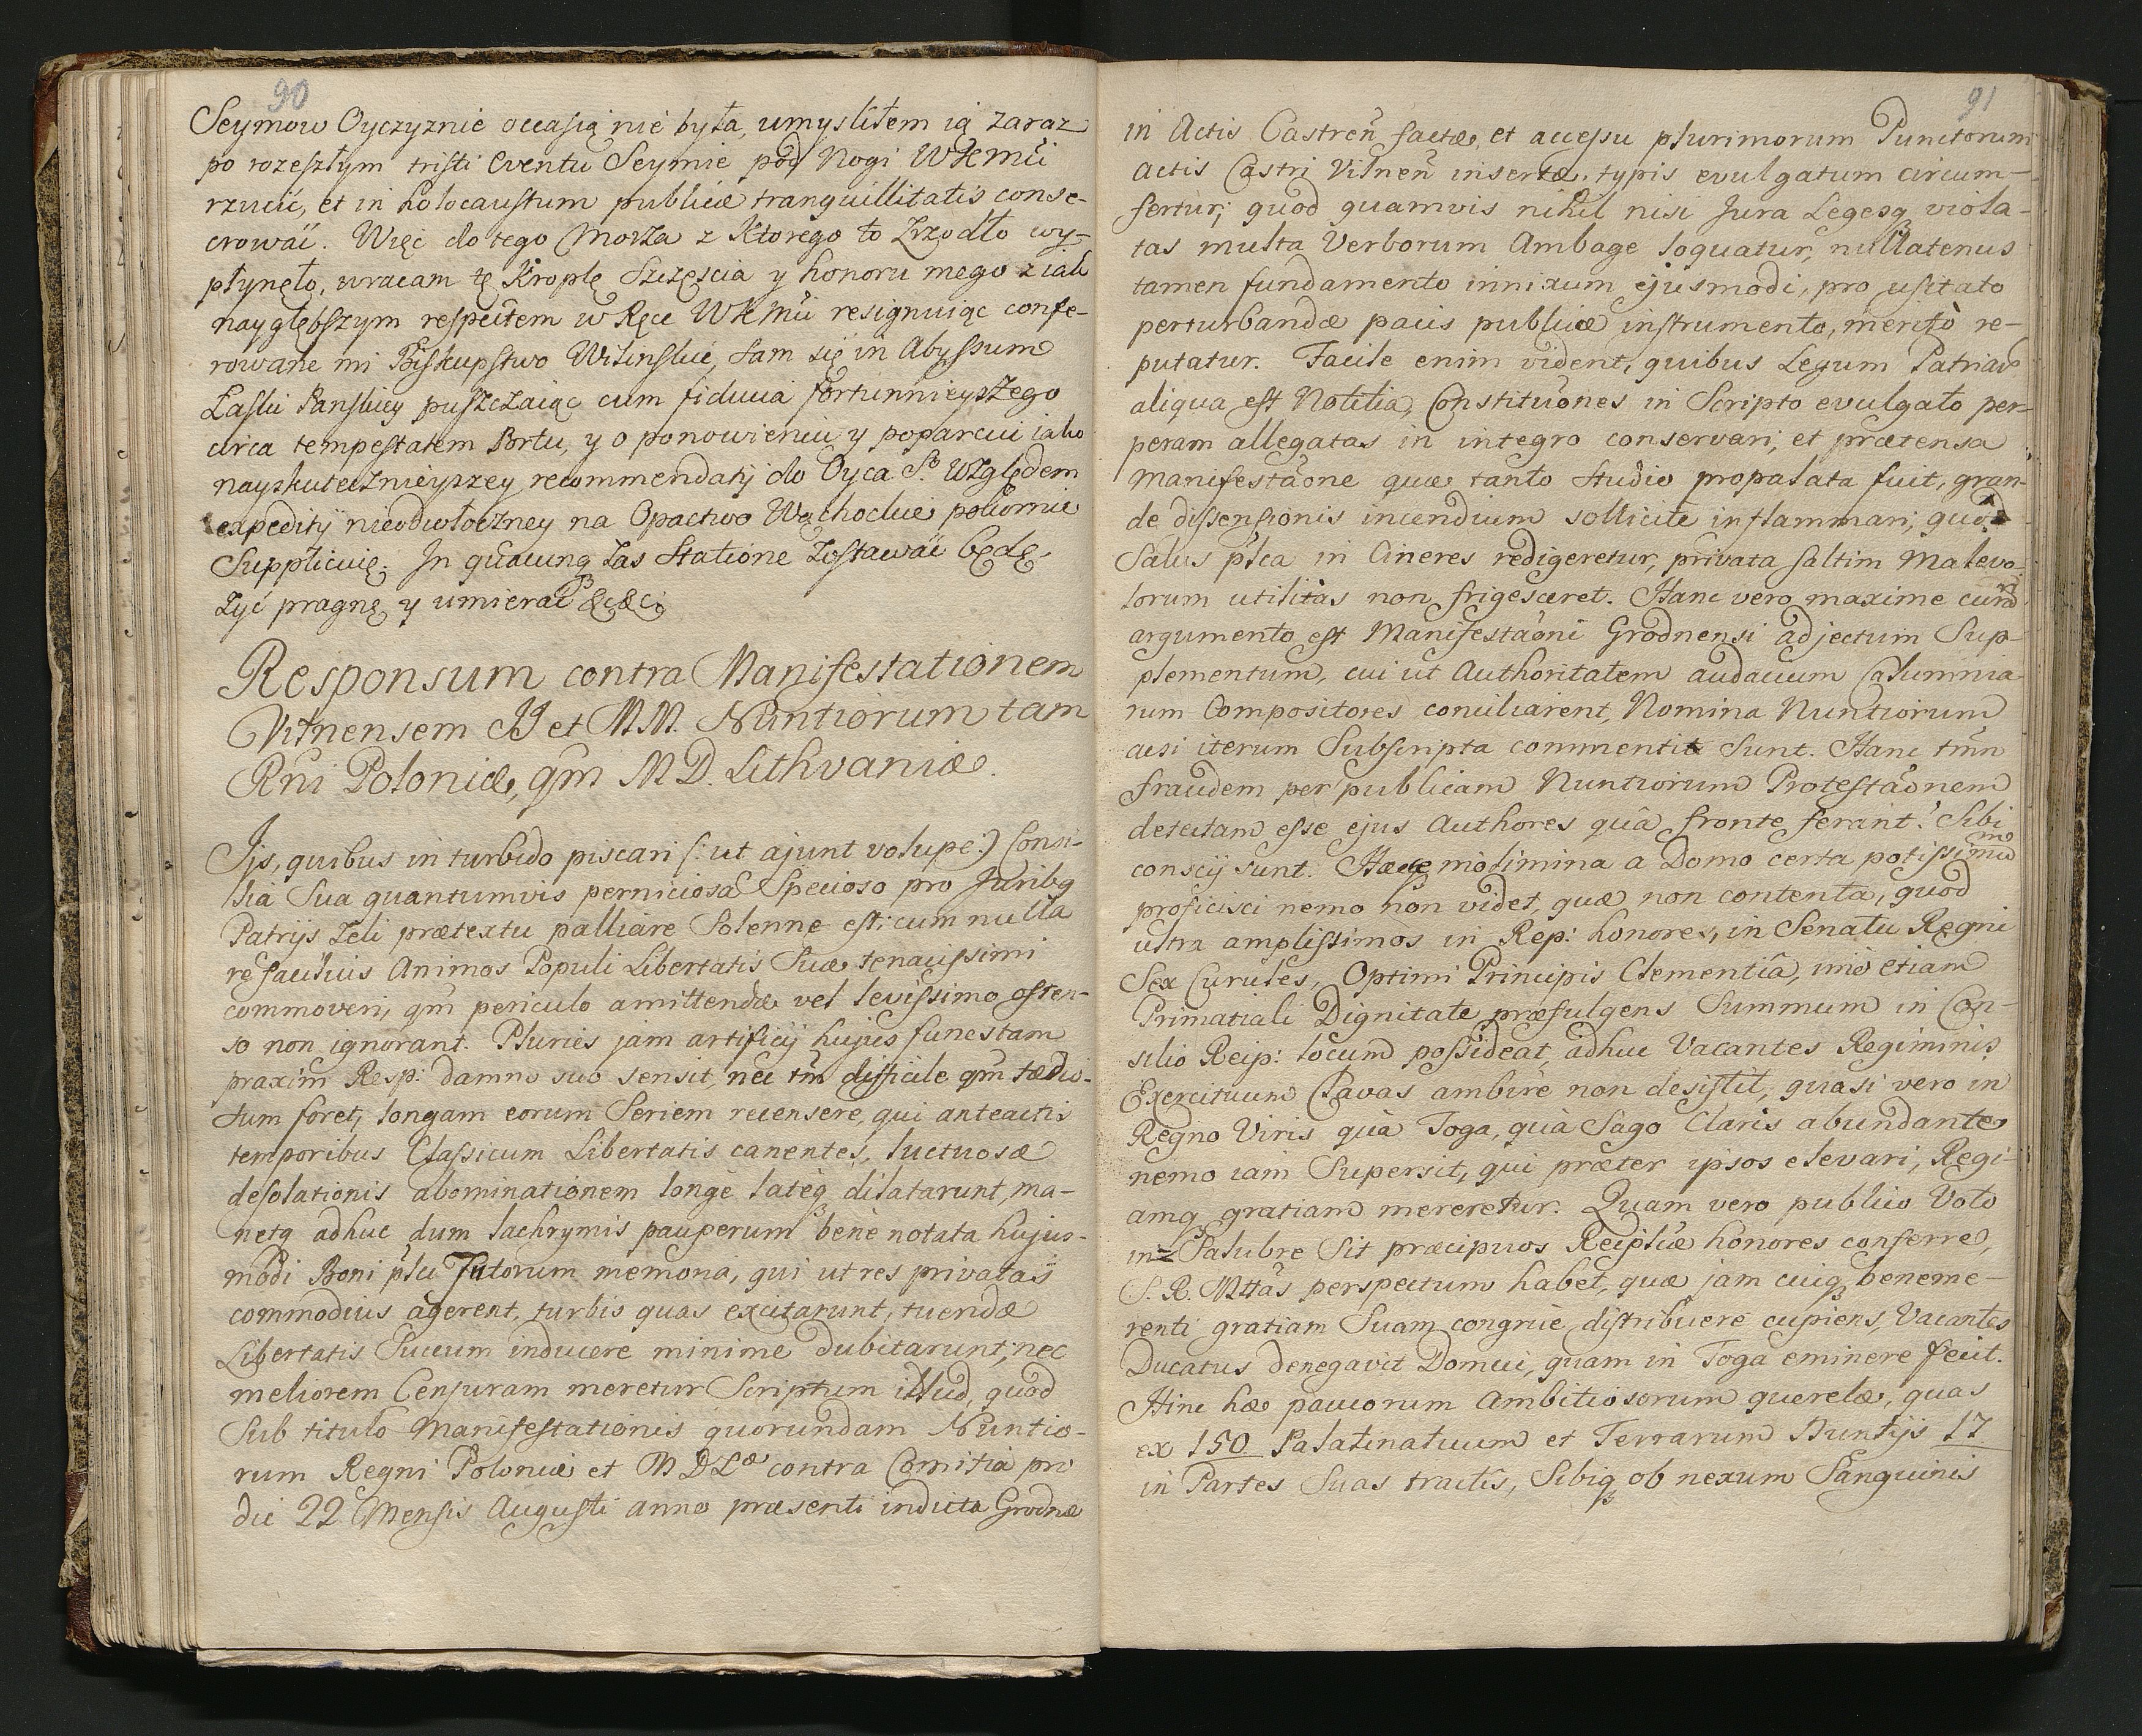 90
Seymow Oyczyznie occasią nie była, umysliłem ią zaraz
po rozeszłym tristi eventu Seymie pod Nogi WKMci
rzucić, et in holocaustum publicæ tranquillitatis conse-
crować. Więc do tego Morza z Ktorego to Zrzodło wy-
płynęło, wracam tę Kroplę Szczęścia y honoru mego z iak
naygłębszym respectem w Ręce WKMci resignuiąc confe-
rowane mi Biskupstwo Wilinskie, sam się in Abyssum
Łaski Panskiey puszczaiąc cum fiducia fortunnieyszego
circa tempestatem Portu, y o ponowieniu y poparciu iako
nayskutecznieyszey recommendatij do Oyca S.º Względem
expeditij nieodwłoczney na Opactwo Wąchockie pokornie
Supplicuię. In quacunq zas Statione zostawać będę,
żyć pragnę y umierać &c &c
Responsum contra Manifestationem
Vilnensem JJ et MM. Nuntiorum tam
Rni Poloniæ, qm M D. Lithvaniæ.
Ijs, quibus in turbido piscari (: ut ajunt volupe:) Consi-
lia Sua quantumvis perniciosa Specioso pro Juribq
Patrijs Zeli prætextu palliare Solenne est: cum nulla
re facilius Animos Populi Libertatis Suæ tenacissimi
commoveri, qm periculo amittendæ vel levissimo osten-
so non ignorant. Pluries jam artificij hujus funestam
praxim Resp: damno suo sensit, nec tm difficile qm tædio-
sum foret, longam eorum Seriem recensere, qui anteactis
temporibus Classicum Libertatis canentes, luctuosæ
desolationis abominationem longè latèq dilatarunt, ma-
netq adhuc dum lachrymis pauperum benè notata hujus-
modi Boni plci Tutorum memoria, qui ut res privatas
commodius agerent, turbis quas excitarunt, tuendæ
Libertatis Fucum inducere minime dubitarunt; nec
meliorem Censuram meretur Scriptum illud, quod
Sub titulo Manifestationis quorundam Nuntio-
rum Regni Poloniæ et M D Læ contra Comitia pro
die 22 Mensis Augusti anno præsenti indicta Grodnæ
91
in Actis Castren factæ, et accessu plurimorum Punctorum
actis Castri Vilnen insertæ, typis evulgatum circum-
fertur; quod quamvis nihil nisi Jura Legesq viola-
tas multa Verborum Ambage loquatur, nullatenus
tamen fundamento innixum ejusmodi, pro usitato
perturbandæ pacis publicæ instrumento, meritò re-
putatur. Facile enim vident, quibus Legum Patriar
aliqua est Notitia, Constituones in Scripto evulgato per-
peram allegatas in integro conservari; et prætensa
Manifestaone quæ tanto studio propalata fuit, gran-
de dissensionis incendium sollicitè inflammari, quod
Salus plca in Cineres redigeretur, privata saltim Malevo-
lorum utilitas non frigesceret. Hanc vero maxime cum
argumento est Manifestaoni Grodnensi adjectum Sup-
plementum, cui ut Authoritatem audacium Calumnia-
rum Compositores conciliarent, Nomina Nuntiorum
acsi iterum Subscripta commentit Sunt. Hanc tmn
fraudem per publicam Nuntiorum Protestaonem
detectam esse ejus Authores quâ fronte ferant? Sibi
conscij sunt. Hæcq molimina a Domo certa potissimum
proficisci nemo non videt, quæ non contenta, quod
ultra amplissimos in Rep: honores, in Senatu Regni
Sex Curules, Optimi Principis Clementiâ, imò etiam
Primatiali Dignitate præfulgens Summum in Con-
silio Reip: locum possideat, adhuc Vacantes Regiminis
Exercituum Clavas ambire non desistit, quasi vero in
Regno Viris quà Toga, quà Sago Claris abundante
nemo iam Supersit, qui præter ipsos elevari, Regi-
amq gratiam mereretur. Quam vero publico Voto
in= Salubre Sit præcipuos Reiplcæ honores conferre,
S. R. Mttas perspectum habet, quæ jam cuiq beneme-
renti gratiam Suam congruè distribuere cupiens, Vacantes
Ducatus denegavit Domui, quam in Toga eminere fecit.
Hinc hæ paucorum Ambitiosorum querelæ, quas
ex 150 Palatinatuum et Terrarum Nuntijs 17
in Partes Suas tractis, Sibiq ob nexum Sanguinis